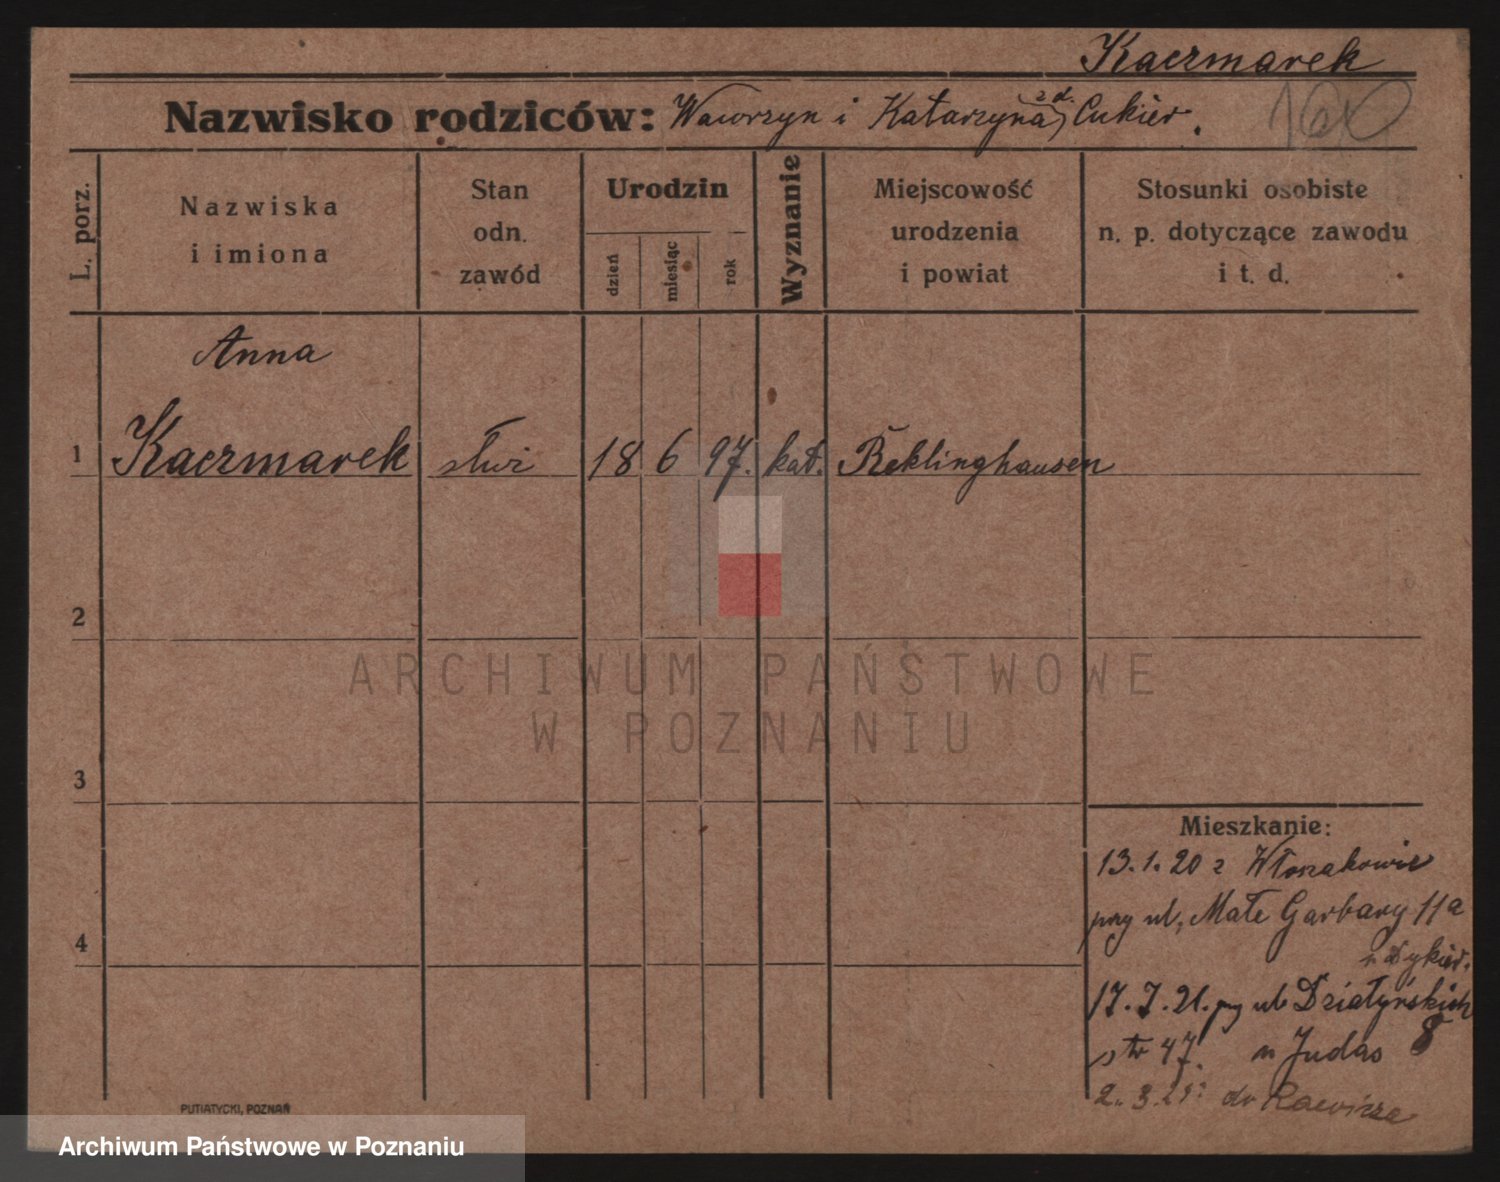 Kaczmarek
Nazwisko rodziców: Wawrzyn i Katarzyna z d. Cukier.
160
L. porz.
Nazwiska
i imiona
Stan
odn.
zawód
Urodzin
dzień
miesiąc
rok
Wyznanie
Miejscowość
urodzenia
i powiat
Stosunki osobiste
n. p. dotyczące zawodu
i t. d.
Anna
1 Kaczmarek służ 18 6 97. kat. Reklinghausen
2
3
4
ARCHIWUM PAŃSTWOWE
W POZNANIU
Mieszkanie:
13.1.20 z Włoszakowic
przy ul. Małe Garbary 11a
17.7.21. przy ul Działyńskich 8
str 47. u Judas
2.3. do Rawicza
PUTIATYCKI, POZNAŃ
Archiwum Państwowe w Poznaniu